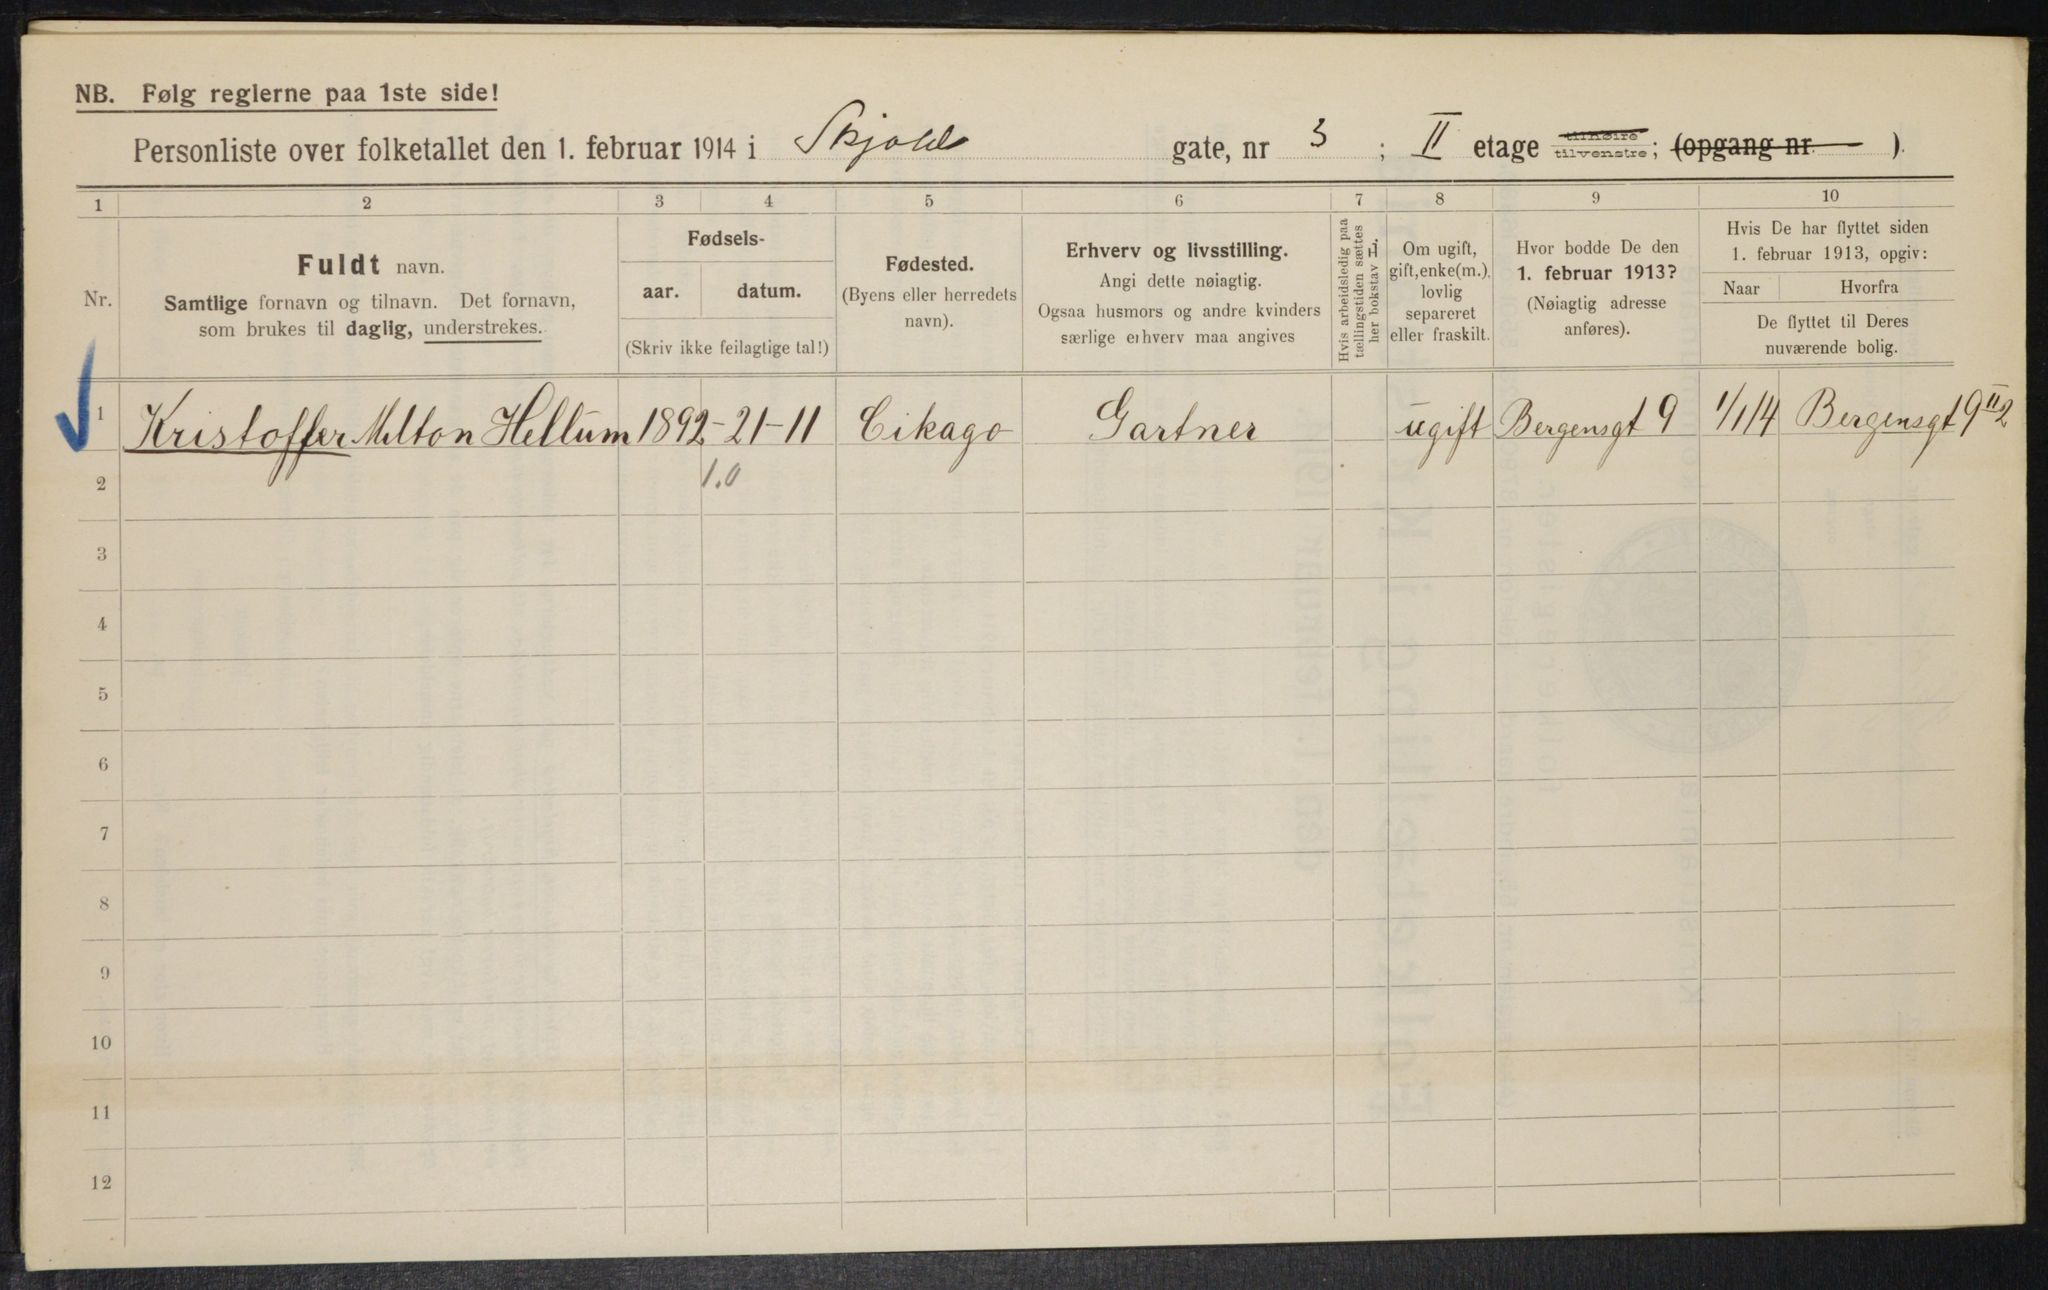 NB. Følg reglerne paa 1ste side!
Personliste over folketallet den 1. februar 1914 i Skjolds gate, nr 3 ; II etage tilhøire tilvenstre; (opgang nr ).
1 2 3 4 5 6 7 8 9 10
Nr.
Fuldt navn.
Samtlige fornavn og tilnavn. Det fornavn,
som brukes til daglig, understrekes.
Fødsels-
aar. datum.
(Skriv ikke feilagtige tal!)
Fødested.
(Byens eller herredets
navn).
Erhverv og livsstilling.
Angi dette nøiagtig.
Ogsaa husmors og andre kvinders
særlige erhverv maa angives
Hvis arbeidsledig paa
tællingstiden sættes
her bokstav
Om ugift,
gift, enke(m.),
lovlig
separeret
eller fraskilt.
Hvor bodde De den
1. februar 1913?
(Nøiagtig adresse
anføres).
Hvis De har flyttet siden
1. februar 1913, opgiv:
Naar Hvorfra
De flyttet til Deres
nuværende bolig.
1 Kristoffer Milton Hellum 1892-21-11 Cikago Gartner ugift Bergensgt 9 1/1 14 Bergensgt 9 II 2
2 1.0
3
4
5
6
7
8
9
10
11
12